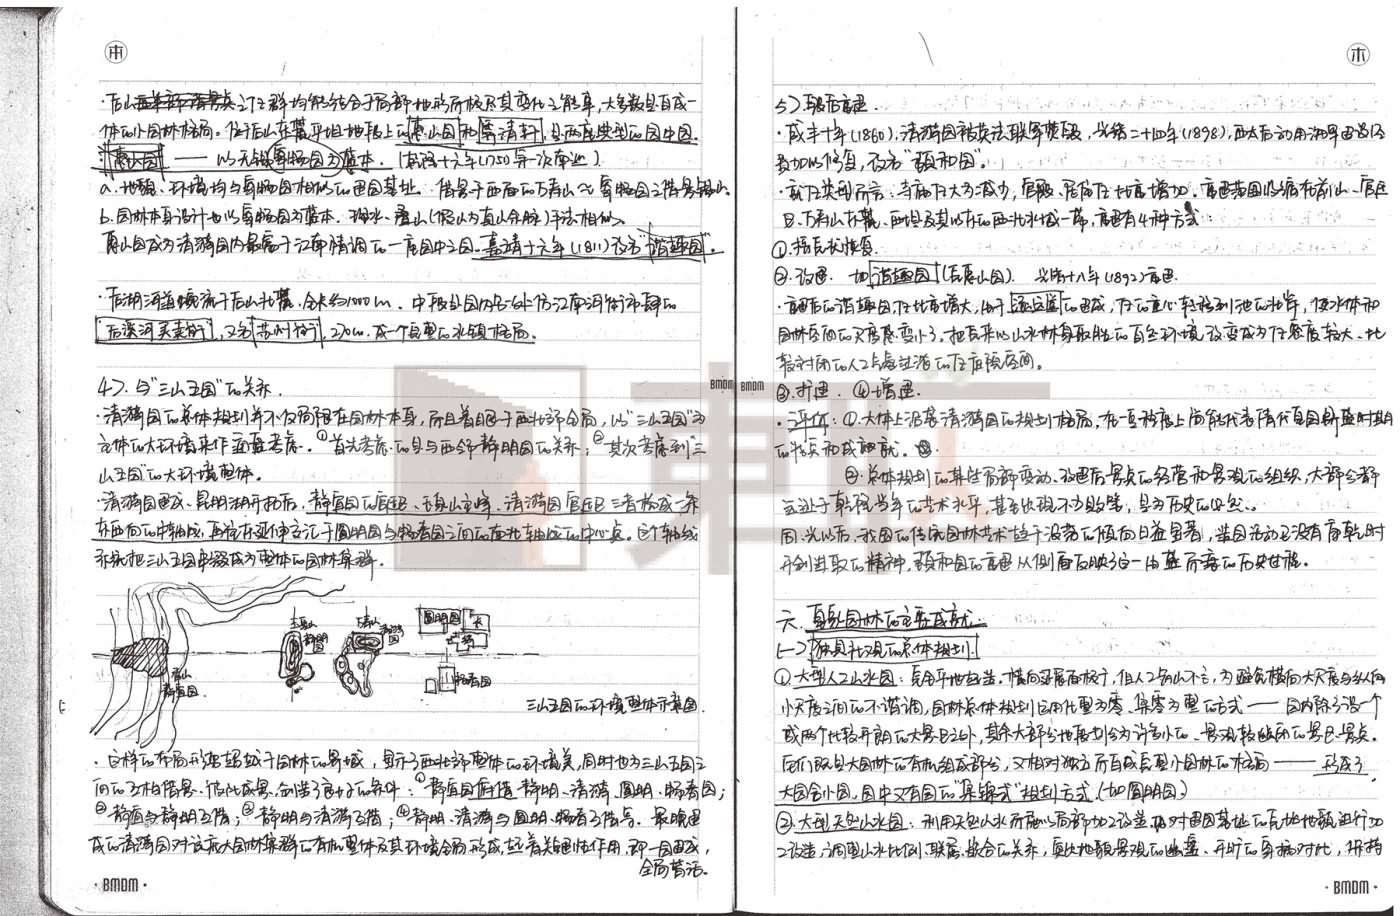 ·后山之建筑群均能结合于局部地形所极尽其变化之能事，大多数具自成一
体的小园林格局。位于后山东麓平坦地段上的惠山园和霁清轩，是两座典型的园中园。
惠山园——以无锡寄畅园为蓝本.（乾隆十六年(1750第一次南巡）
a.地貌、环境均与寄畅园相似的建园基址. 借景于西面的万寿山≈寄畅园之借景锡山
b.园林本身设计也以寄畅园为蓝本. 理水、叠山(假山为真山余脉)手法相似.
惠山园成为清漪园内最富于江南情调的一座园中之园. 嘉庆十六年(1811)改名"谐趣园".
·后湖河道蜿流于后山北麓.全长约1000m. 中段是园内仿江南河街市肆的
后溪河买卖街,又名苏州街,270m.成一个完整的水镇格局。
4>. 与"三山五园"的关系
·清漪园的总体规划并不仅局限在园林本身，而且着眼于西北郊全局，以"三山五园"为
主体的大环境来作通盘考虑. ①首先考虑的是与西邻静明园的关系；②其次考虑到"三
山五园"的大环境整体.
·清漪园建成、昆明湖开拓后，静宜园的宫廷区、玉泉山主峰、清漪园宫廷区三者构成一条
东西向的中轴线，再往东延伸交汇于圆明园与畅春园之间的南北轴线的中心点。这个轴线
系统把三山五园串缀成为整体的园林集群.
玉泉山
静明园
万寿山
清漪园
圆明园
长
畅春园
香山
静宜园
三山五园的环境整体示意图.
·这样的布局形势超越于园林的界域，显示了西北郊整体的环境美,同时也为三山五园之
间的互相借景、彼此成景创造了良好的条件：①静宜园俯借静明、清漪、圆明、畅春园；
②静宜与静明互借；③静明与清漪互借；④静明、清漪与圆明、畅春互借景. 最晚建
成的清漪园对这庞大园林集群的有机整体及其环境全局形成,起着关键性作用,即一园建成,
全局皆活.
·BMDM·
5>.重修后重建.
·咸丰十年(1860),清漪园被英法联军焚毁，光绪二十四年(1898),西太后动用海军建设经
费加以修复，改名"颐和园".
·就建筑类型而言，寺庙建筑大为减少，宫殿、居住建筑比重增加. 重建范围收缩在前山、宫廷
区、万寿山东麓、西堤及其以东的西北水域一带，重建有4种方式
①.按原状恢复
②.改建. 如谐趣园(原惠山园). 光绪十八年(1892)重建.
·重建后的谐趣园,建筑比重增大，由于涵远堂的建成，建筑的重心转移到池的北岸，使水体和
园林空间的尺度感变小了. 把原来以山水林泉取胜的自然环境改变成为建筑密度较大、比
较封闭的人工气息过浓的建筑庭院空间。
BMDM
BMDM
③.扩建. ④.增建.
·评价：①.大体上沿袭清漪园的规划格局，在一定程度上尚能代表清代皇园鼎盛时期
的特点和成就.
②.总体规划的某些局部变动、改建后景点的经营和景观的组织，大部分都
无逊于乾隆当年的艺术水平，甚至出现不少败笔，是为历史的必然.
同、光以后，我国的传统园林艺术趋于没落的倾向日益显著，造园活动已没有康乾时
开创进取的精神，颐和园的重建从侧面反映了这一由盛而衰的历史过程.
六.皇家园林的主要成就.
(一)独具壮观的总体规划.
①大型人工山水园：完全平地起造. 横向延展面极广,但人工筑山不高，为避免横向大尺度与纵向
小尺度之间的不谐调，园林总体规划运用化整为零、集零为整的方式——园内除了设一个
或两个比较开朗的大景区之外，其余大部分地段划分为许多小的、景观较幽闭的景区、景点.
它们既是大园林的有机组成部分，又相对独立而自成完整小园林的格局——形成了
大园含小园、园中又有园的"集锦式"规划方式. (如圆明园)
②.大型天然山水园：利用天然山水所施以局部加工改造,对建园基址的原始地貌进行加
工改造，调整山水比例、联属、嵌合的关系，突出地貌景观的幽邃、开旷的穿插对比，保持
·BMDM·